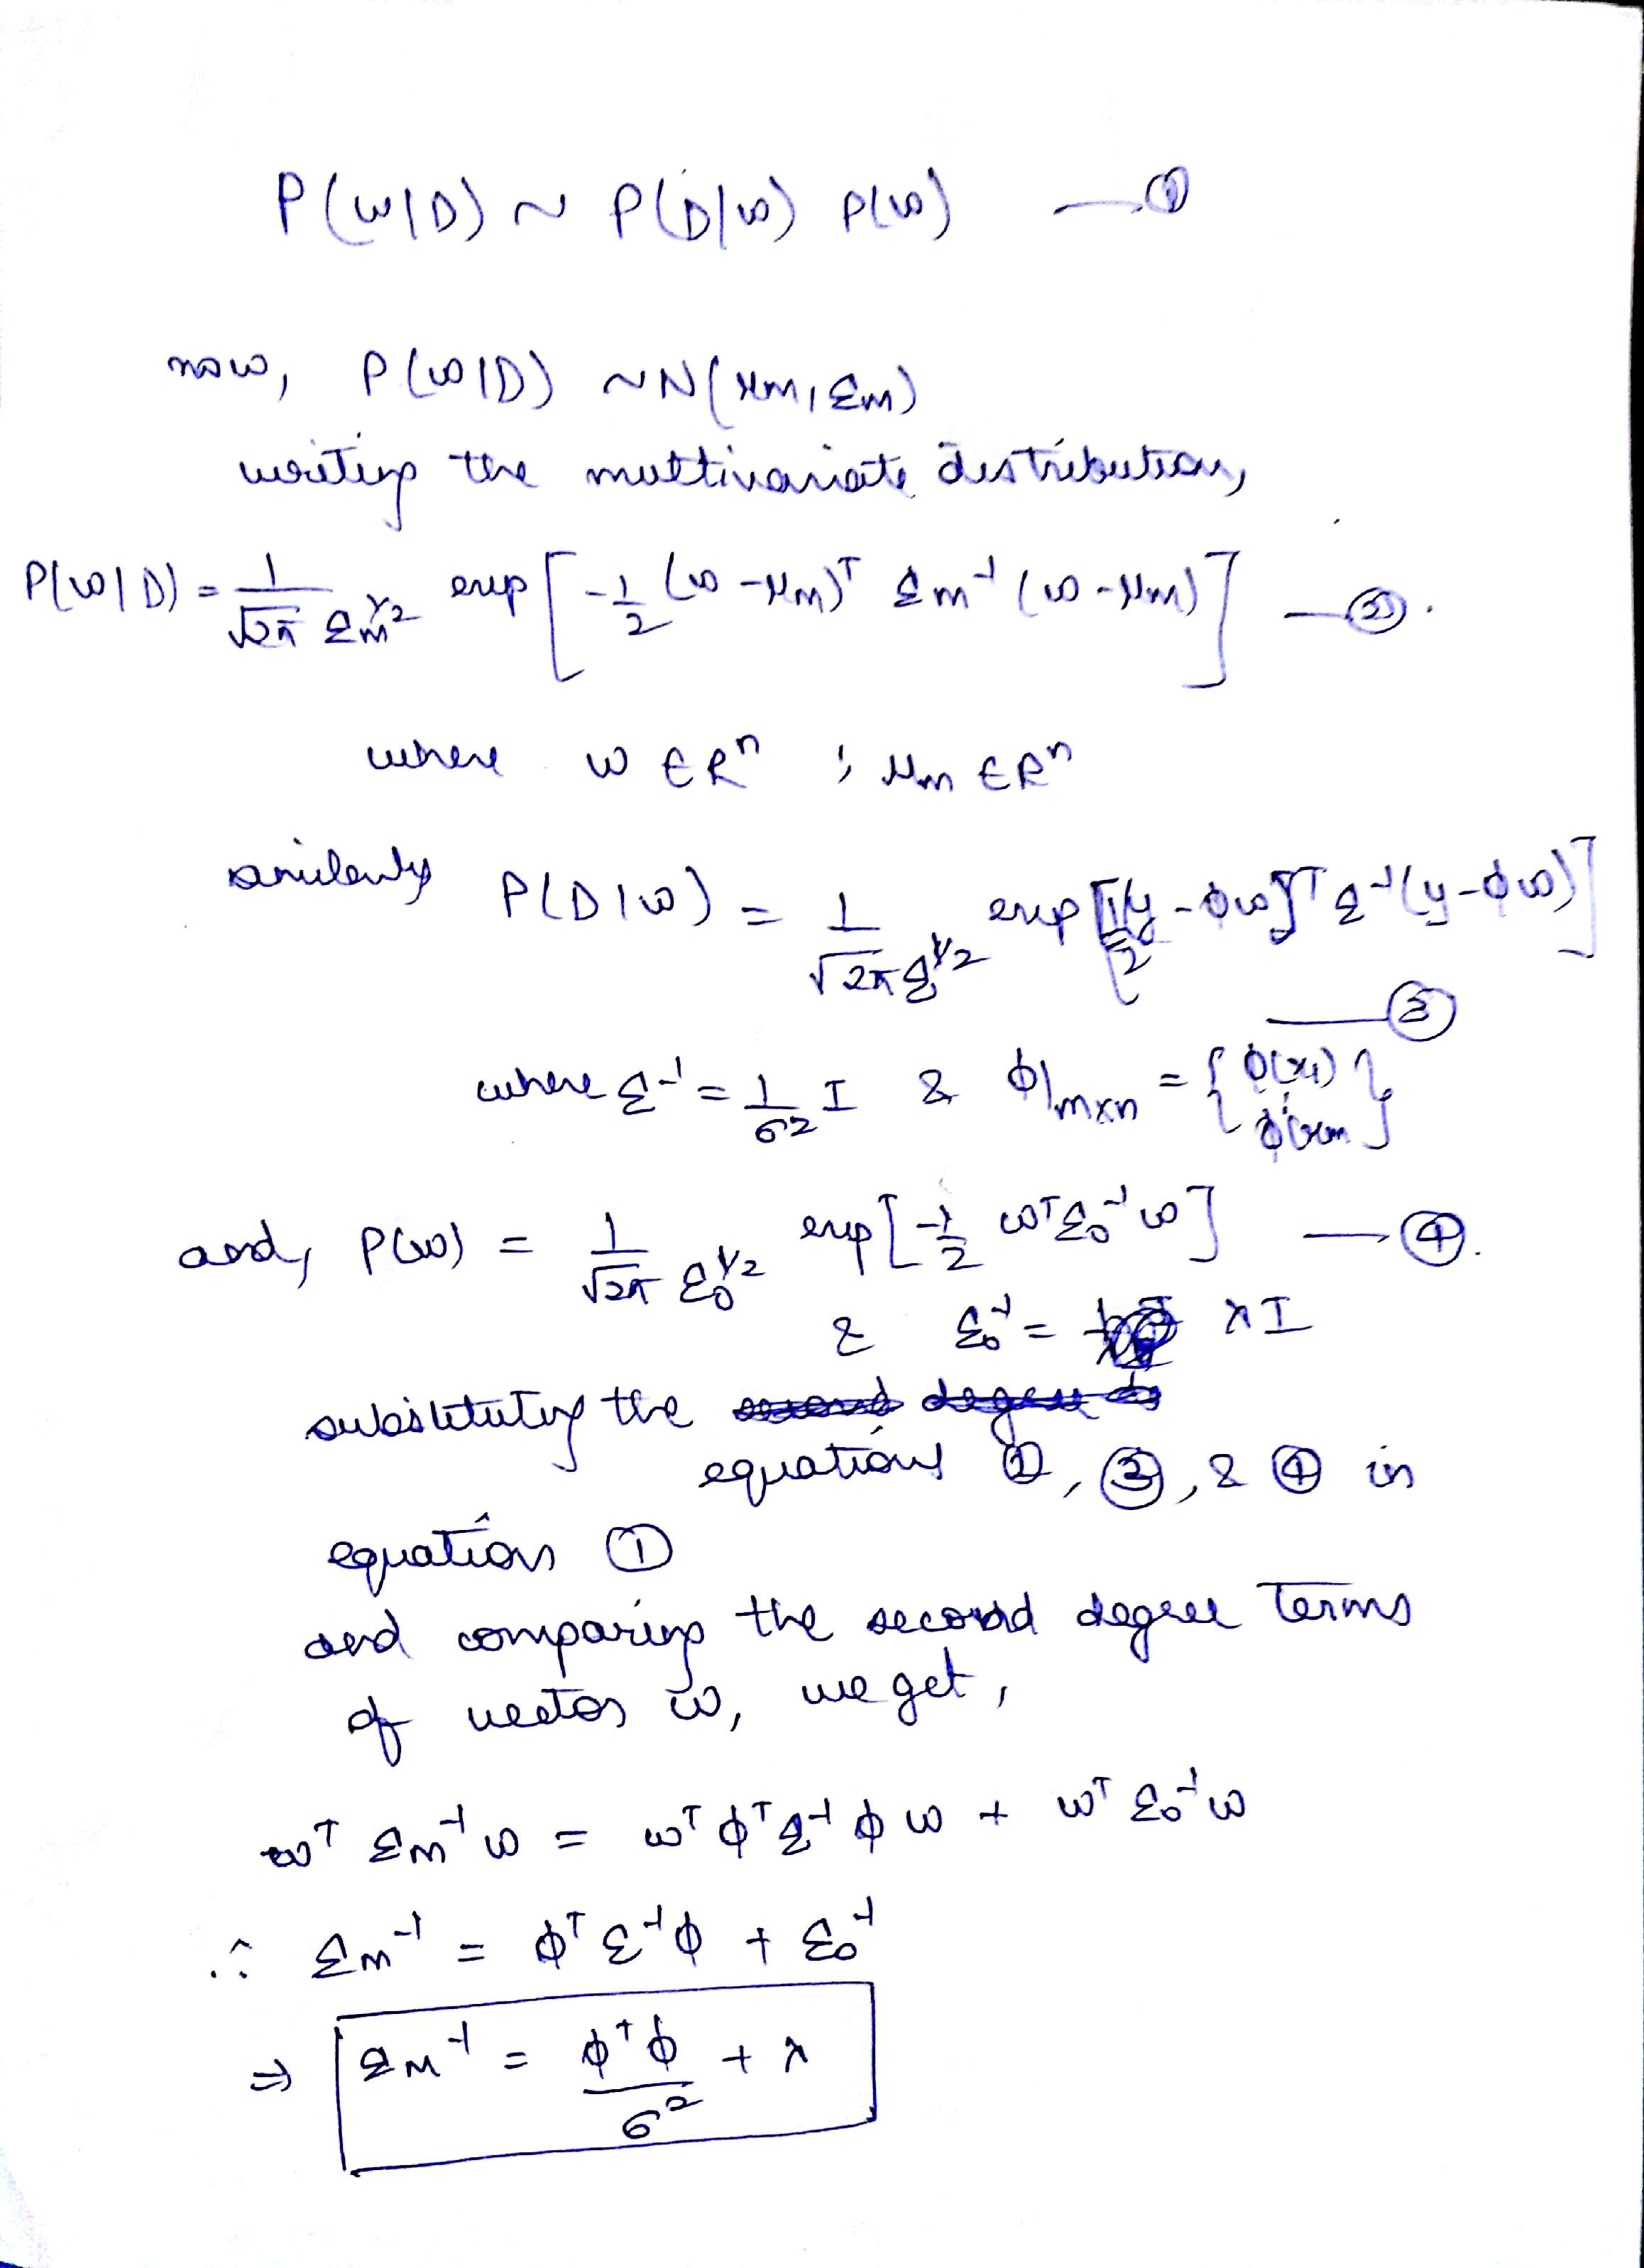 P(w|D) ~ P(D|w) P(w) —①
now, P(w|D) ~N(μm, Σm)
writing the multivariate distribution,
P(w|D) = 1/√2π Σm^1/2 exp[-1/2 (w-μm)ᵀ Σm⁻¹ (w-μm)] —②.
where w ∈ Rⁿ ; μm ∈ Rⁿ
similarly P(D|w) = 1/√2π Σ^1/2 exp[-1/2 [y-φw]ᵀ Σ⁻¹(y-φw)]
—③
where Σ⁻¹ = 1/σ² I & φ|mxn = { φ(x1) ⋮ φ(xm }
and, P(w) = 1/√2π Σ0^1/2 exp[-1/2 wᵀΣ0⁻¹w] —④.
& Σ0⁻¹ = λI
substituting the
equations ②, ③, & ④ in
equation ①
and comparing the second degree terms
of vector w, we get,
wᵀ Σm⁻¹ w = wᵀ φᵀ Σ⁻¹ φ w + wᵀ Σ0⁻¹ w
∴ Σm⁻¹ = φᵀ Σ⁻¹ φ + Σ0⁻¹
⇒ Σm⁻¹ = φᵀφ/σ² + λ